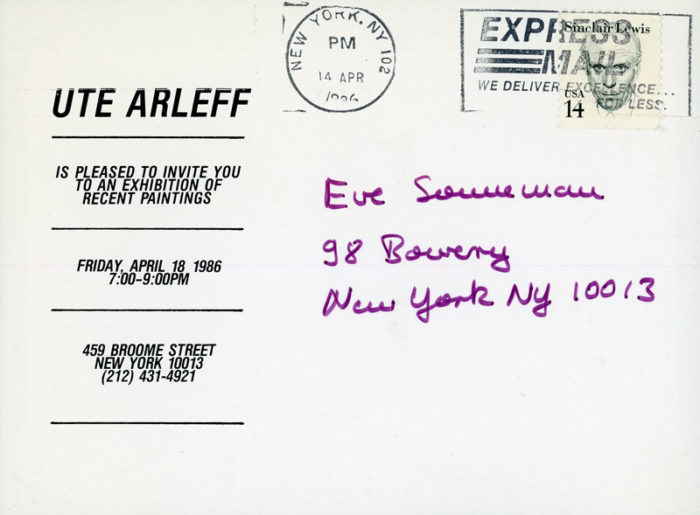 UTE ARLEFF
IS PLEASED TO INVITE YOU
TO AN EXHIBITION OF
RECENT PAINTINGS
FRIDAY, APRIL 18 1986
7:00-9:00PM
459 BROOME STREET
NEW YORK 10013
(212) 431-4921
NEW YORK, NY 102
PM
14 APR
1986
EXPRESS
MAIL
WE DELIVER EXCELLENCE...
FOR LESS.
Sinclair Lewis
USA
14
Eve Sonneman
98 Bowery
New York NY 10013